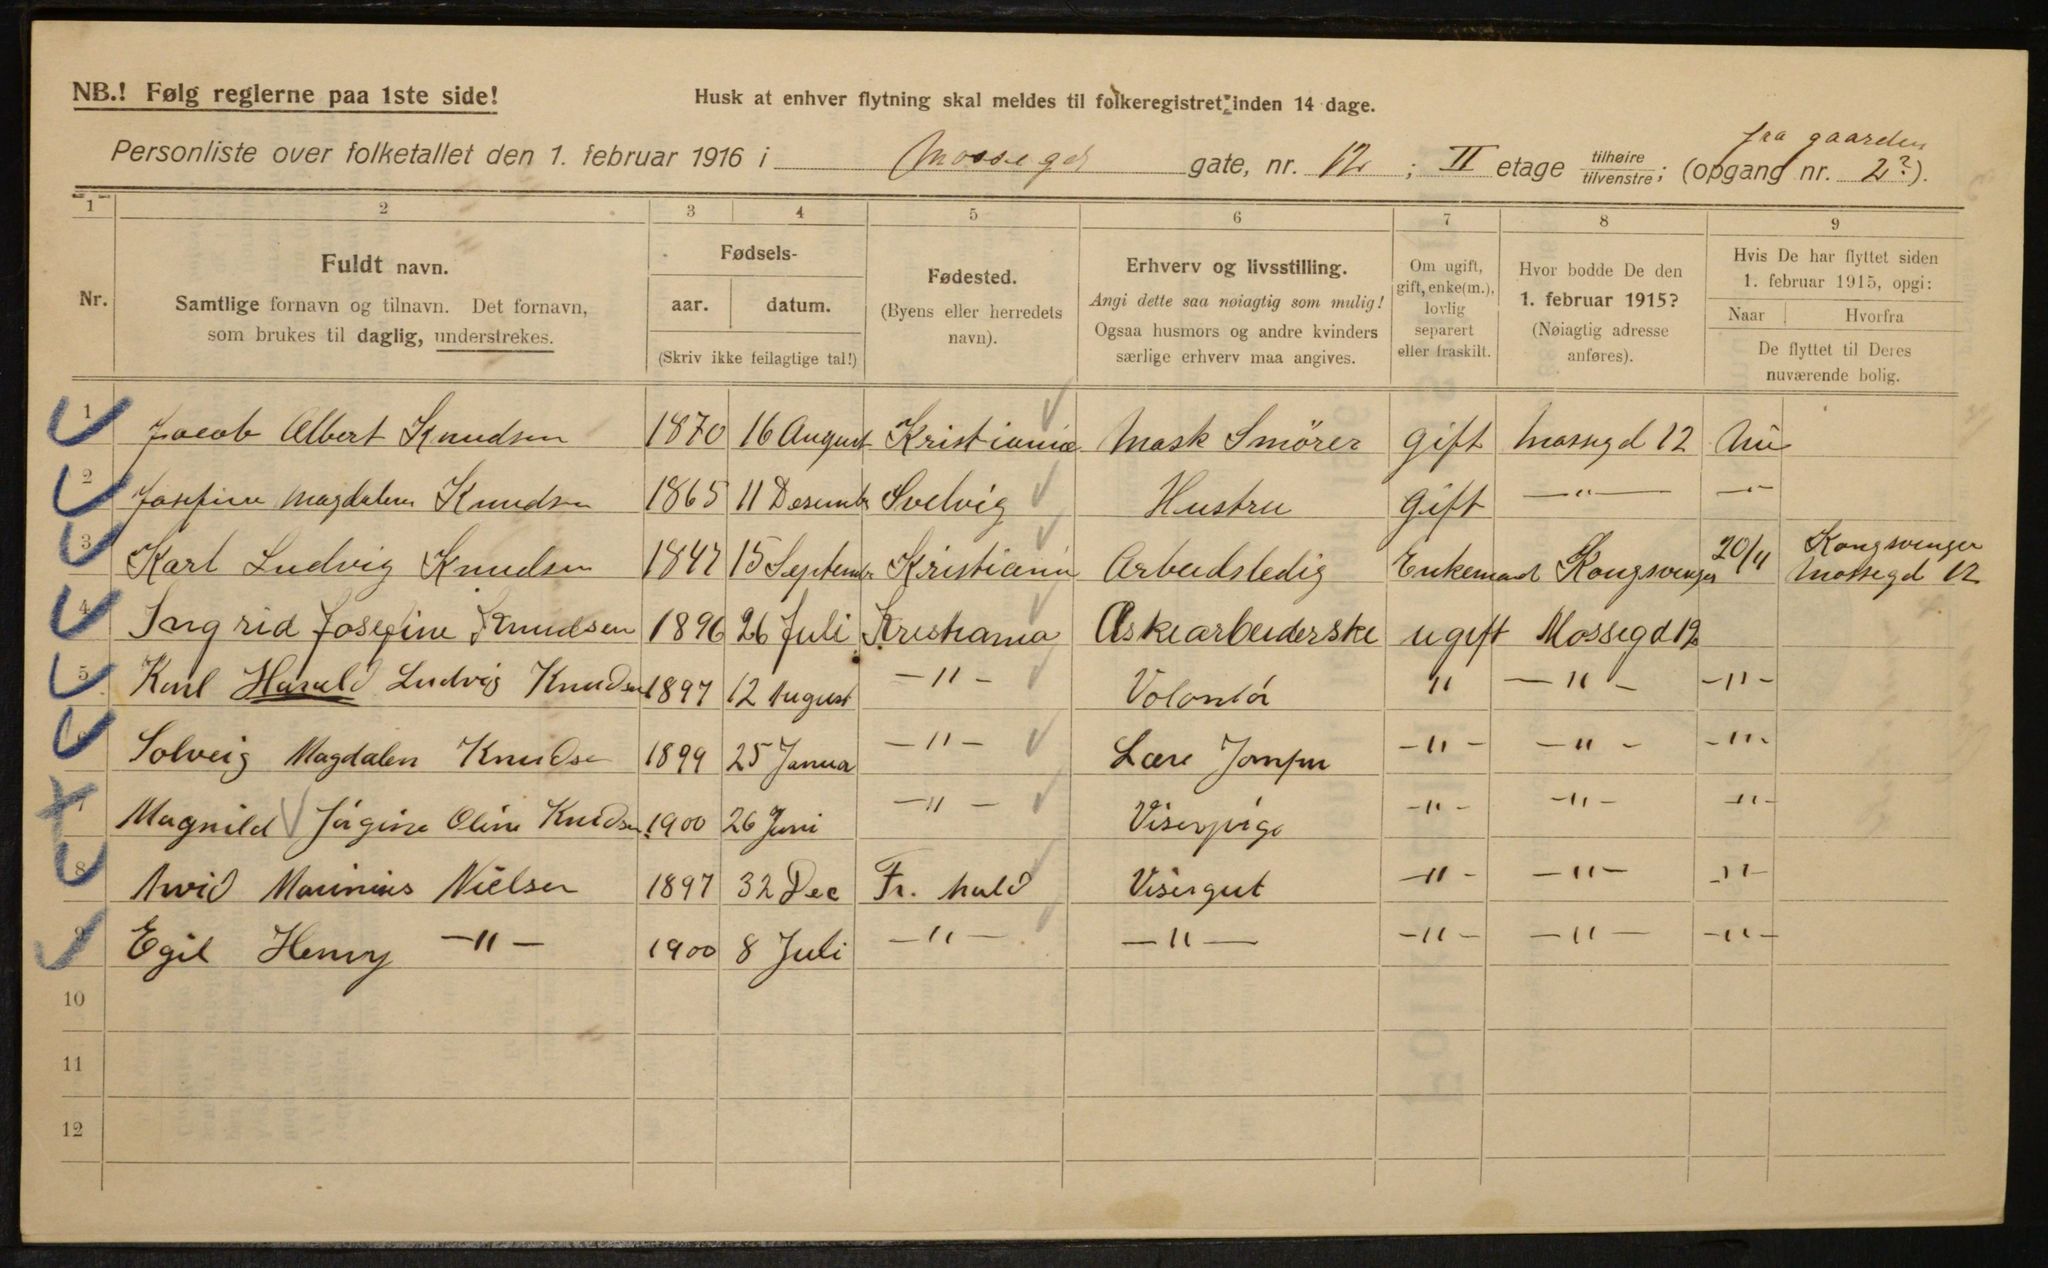 NB.! Følg reglerne paa 1ste side!
Husk at enhver flytning skal meldes til folkeregistret inden 14 dage.
fra gaarden
Personliste over folketallet den 1. februar 1916 i Mossegd gate, nr. 12; II etage tilhøire/tilvenstre; (opgang nr. 2?).
1 2 3 4 5 6 7 8 9
Nr.
Fuldt navn.
Samtlige fornavn og tilnavn. Det fornavn,
som brukes til daglig, understrekes.
Fødsels-
aar. datum.
(Skriv ikke feilagtige tal!)
Fødested.
(Byens eller herredets
navn).
Erhverv og livsstilling.
Angi dette saa nøiagtig som mulig!
Ogsaa husmors og andre kvinders
særlige erhverv maa angives.
Om ugift,
gift, enke(m.),
lovlig
separert
eller fraskilt.
Hvor bodde De den
1. februar 1915?
(Nøiagtig adresse
anføres).
Hvis De har flyttet siden
1. februar 1915, opgi:
Naar Hvorfra
De flyttet til Deres
nuværende bolig.
1 Jacob Albert Knudsen 1870 16 August Kristiania Mask Smörer Gift Mossegd 12
2 Josefine Magdalene Knudsen 1865 11 Desembr Svelvig Hustru Gift —"— —"—
3 Karl Ludvig Knudsen 1847 15 Septembr Kristiania Arbeidsledig Enkemand Kongsvinger 20/11 Kongsvinger Mossegd 12
4 Ingrid Josefine Knudsen 1896 26 Juli Kristiania Æskearbeiderske ugift Mossegd 12
5 Karl Harald Ludvig Knudsen 1897 12 August —"— Volontör " —"— —"—
6 Solveig Magdalen Knudse 1899 25 Janua —"— Lære Jomfru —"— —"— —"—
7 Magnild Jörgine Oline Knudsen 1900 26 Juni —"— Viserpige —"— —"— —"—
8 Arvid Marinius Nielsen 1897 32 Dec Fr. hald Visergut —"— —"— —"—
9 Egil Henry —"— 1900 8 Juli —"— —"— —"— —"— —"—
10
11
12